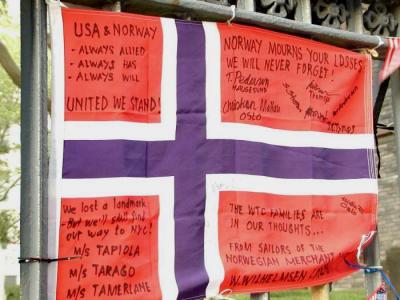 USA & NORWAY
- ALWAYS ALLIED
- ALWAYS HAS
- ALWAYS WILL
UNITED WE STAND!
NORWAY MOURNS YOUR LOSSES
WE WILL NEVER FORGET!
T. Pedersen
HAUGESUND
Christian
OSLO
We lost a landmark
- But we'll still find
our way to NYC!
M/S TAPIOLA
M/S TARAGO
M/S TAMERLANE
THE WTC FAMILIES ARE
IN OUR THOUGHTS...
FROM SAILORS OF THE
NORWEGIAN MERCHANT
W. WILHELMSEN LINES